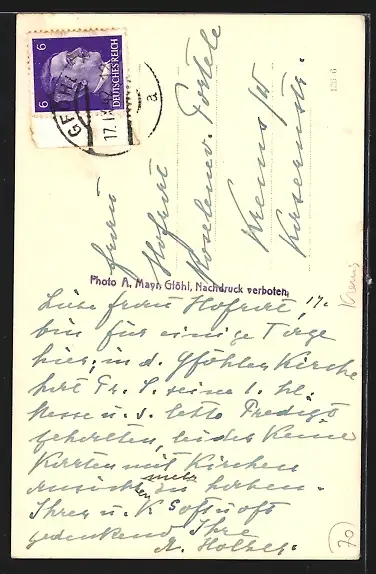 6
6
DEUTSCHES REICH
GFÖHL
17.
a
126 6
Frau
Hofrat
Krems
Photo A. Mayr, Gföhl, Nachdruck verboten.
Krems
Liebe Frau Hofrat,
bin für einige Tage
hier, in d. Gföhler Kirche
hat Fr. S. seine 1. hl.
Messe u. s. letzte Predigt
gehalten, leider keine
Karten mit Kirchen
mehr
zu haben.
Ihrer u. K so oft u oft
gedenkend Ihre
A.
70